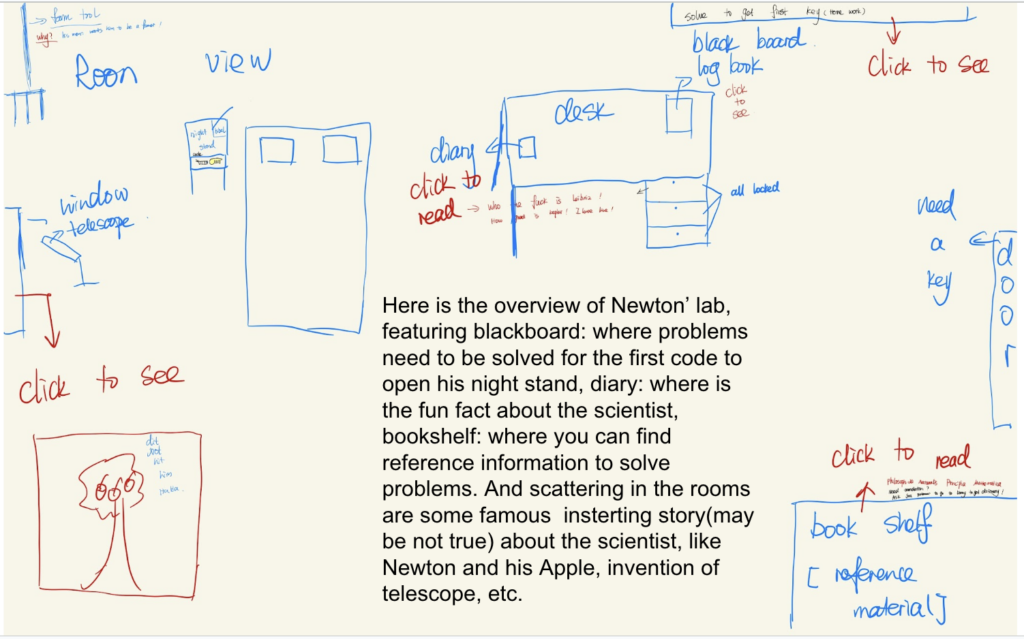 farm tool
why? his mom wants him to be a farmer!
Room view
solve to get first key (home work)
black board
click to see
log book
click
to
see
desk
diary
click to
read
who the fuck is
all locked
night
stand
window
telescope
click to see
need
a
key
door
Here is the overview of Newton’ lab,
featuring blackboard: where problems
need to be solved for the first code to
open his night stand, diary: where is
the fun fact about the scientist,
bookshelf: where you can find
reference information to solve
problems. And scattering in the rooms
are some famous insterting story(may
be not true) about the scientist, like
Newton and his Apple, invention of
telescope, etc.
did
not
hit
him
click to read
book shelf
[ reference
material]